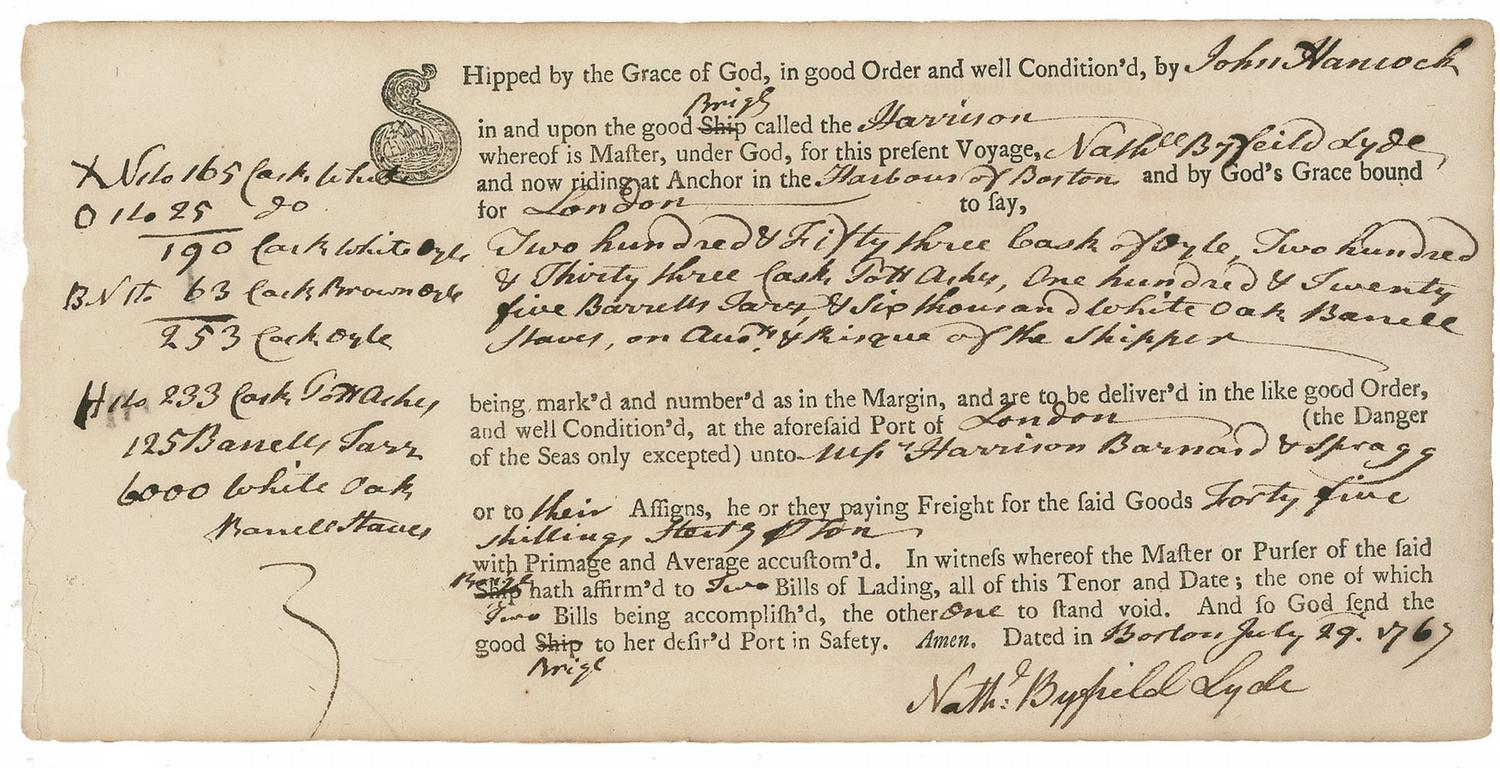 SHipped by the Grace of God, in good Order and well Condition'd, by John Hancock
Brigt
in and upon the good Ship called the Harrison
whereof is Maſter, under God, for this preſent Voyage, Nathll Byfeild Lyde
and now riding at Anchor in the Harbour of Boston and by God's Grace bound
for London to ſay,
Two hundred & Fifty three Cask of Oyle, Two hundred
& Thirty three Cask Pott Ashes, One hundred & Twenty
five Barrells Tarr & Six thousand White Oak Barrell
Staves, on & Risque of the Shipper
X No 165 Cask White
O No 25 do
190 Cask White Oyle
B No 63 Cask Brown Oyle
253 Cask Oyle
H No 233 Cask Pott Ashes
125 Barrells Tarr
6000 White Oak
Barrell Staves
being mark'd and number'd as in the Margin, and are to be deliver'd in the like good Order,
and well Condition'd, at the aforeſaid Port of London (the Danger
of the Seas only excepted) unto Messrs Harrison Barnard & Spragg
or to their Aſſigns, he or they paying Freight for the ſaid Goods Forty five
shillings Sterlg ⅌ Ton
with Primage and Average accuſtom'd. In witneſs whereof the Maſter or Purſer of the ſaid
Brigt
Ship hath affirm'd to Two Bills of Lading, all of this Tenor and Date; the one of which
Two Bills being accompliſh'd, the other One to ſtand void. And ſo God ſend the
good Ship to her deſir'd Port in Safety. Amen. Dated in Boston July 29. 1767
Brigt
Nathl Byfeild Lyde